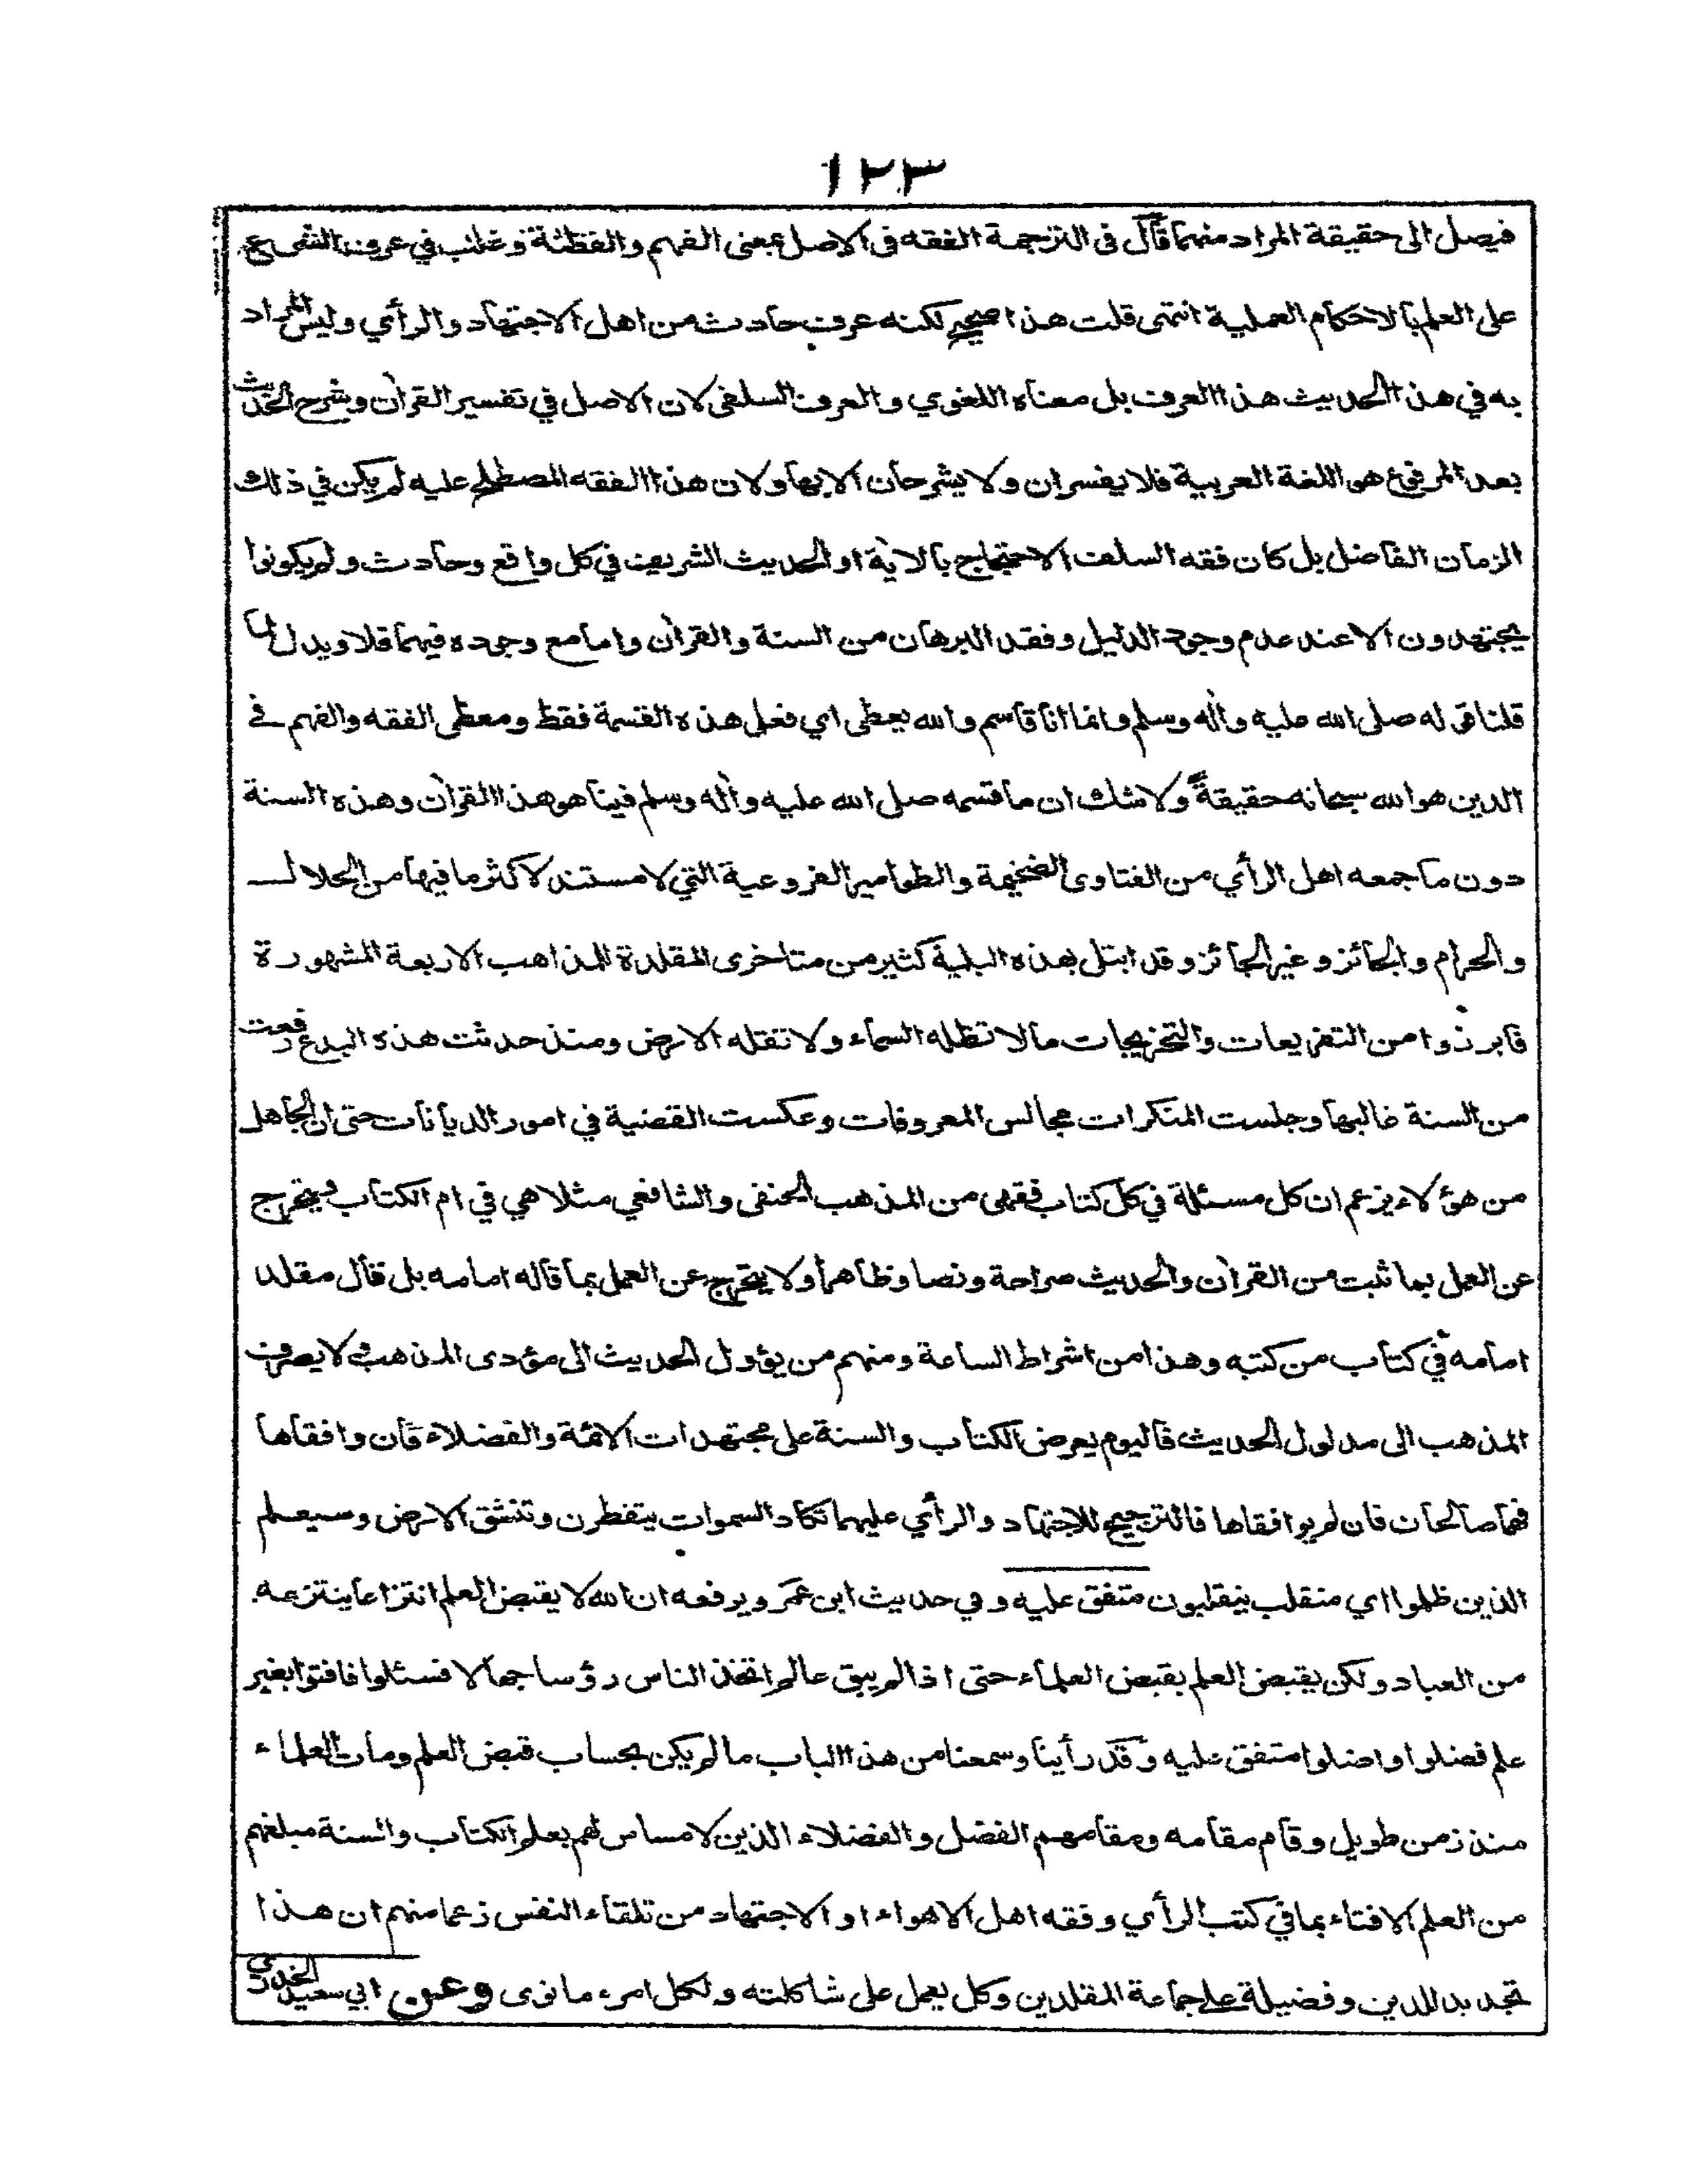 ١٢٣
فيصل الى حقيقة المراد منهما قال فى الترجمة الفقه فى الاصل بمعنى الفهم والفطنة وغلب في عرف الشرع
على العلم بالاحكام العملية انتهى قلت هذا صحيح لكنه عرف حادث من اهل الاجتهاد والرأي وليس المراد
به في هذا الحديث هذا العرف بل معناه اللغوي والعرف السلفى لان الاصل في تفسير القرأن وشرح الحديث
بعد المرفوع هو اللغة العربية فلا يفسران ولا يشرحان الا بها ولان هذا الفقه المصطلح عليه لم يكن في ذلك
الزمان الفاضل بل كان فقه السلف الاحتجاج بالاية او الحديث الشريف في كل واقع وحادث ولم يكونوا
يجتهدون الا عند عدم وجود الدليل وفقد البرهان من السنة والقرأن واما مع وجوده فيهما فلا ويدل لما
قلنا قوله صلى الله عليه واٰله وسلم وانما انا قاسم والله يعطى اي فعلى هذه القسمة فقط ومعطى الفقه والفهم في
الدين هو الله سبحانه حقيقةً ولا شك ان ما قسمه صلى الله عليه واٰله وسلم فينا هو هذا القرأن وهذه السنة
دون ما جمعه اهل الرأي من الفتاوى الضخيمة والطوامير الفروعية التي لا مستند لاكثر ما فيها من الحلال
والحرام والجائز وغير الجائز وقد ابتلى بهذه البلية كثير من متاخرى المقلدة للمذاهب الاربعة المشهورة
فابرزوا من التفريعات والتخريجات ما لا تظله السماء ولا تقله الارض ومنذ حدثت هذه البدع رفعت
من السنة غالبها وجلست المنكرات مجالس المعروفات وعكست القضية في امور الديانات حتى ان الجاهل
من هؤلاء يزعم ان كل مسئلة في كل كتاب فقهى من المذهب الحنفى والشافعي مثلا هي في ام الكتاب فيتحرج
عن العمل بما ثبت من القرأن والحديث صراحة ونصا وظاهرا ولا يتحرج عن العمل بما قاله امامه بل قال مقلد
امامه في كتاب من كتبه وهذا من اشراط الساعة ومنهم من يؤول الحديث الى مؤدى المذهب ولا يصرف
المذهب الى مدلول الحديث فاليوم يعرض الكتاب والسنة على مجتهدات الائمة والفضلاء فان وافقاها
فهما صالحان فان لم يوافقاها فالترجيح للاجتهاد والرأي عليهما تكاد السموات يتفطرن وتنشق الارض وسيعلم
الذين ظلموا اي منقلب ينقلبون متفق عليه وفي حديث ابن عمر ويرفعه ان الله لا يقبض العلم انتزاعا ينتزعه
من العباد ولكن يقبض العلم بقبض العلماء حتى اذا لم يبق عالم اتخذ الناس رؤسا جهالا فسئلوا فافتوا بغير
علم فضلوا واضلوا متفق عليه وقد رأينا وسمعنا من هذا الباب ما لم يكن بحساب قبض العلم ومات العلماء
منذ زمن طويل وقام مقامه ومقامهم الفضل والفضلاء الذين لا مساس لهم بعلم الكتاب والسنة مبلغهم
من العلم الافتاء بما في كتب الرأي وفقه اهل الاهواء او الاجتهاد من تلقاء النفس زعما منهم ان هذا
تجديد للدين وفضيلة على جماعة المقلدين وكل يعمل على شاكلته ولكل امرء ما نوى وعن ابي سعيد الخدري